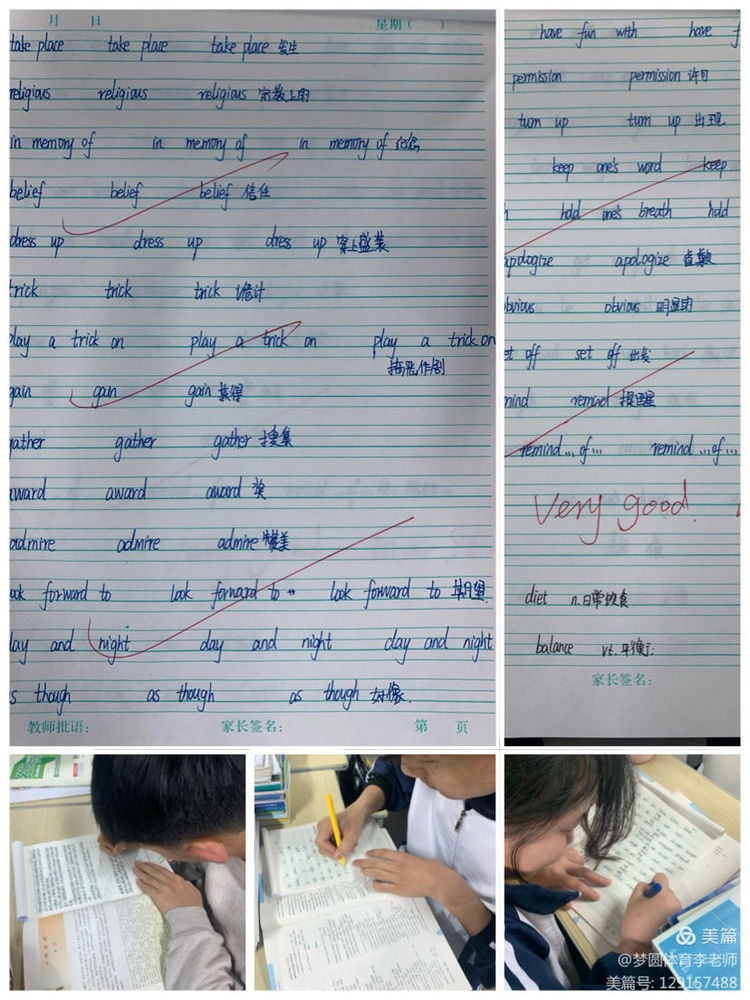 月 日 星期( )
take place take place take place 发生
religious religious religious 宗教上的
in memory of in memory of in memory of 纪念
belief belief belief 信任
dress up dress up dress up 穿上盛装
trick trick trick 诡计
play a trick on play a trick on play a trick on
搞恶作剧
gain gain gain 获得
gather gather gather 搜集
award award award 奖
admire admire admire 赞美
look forward to look forward to look forward to 期望
day and night day and night day and night
as though as though as though 好像
教师批语: 家长签名: 第 页
have fun with have f
permission permission 许可
turn up turn up 出现
keep one's word keep
hold one's breath hold
apologize apologize 道歉
obvious obvious 明显的
set off set off 出发
remind remind 提醒
remind...of... remind...of...
Very good.
diet n.日常饮食
balance vt.平衡;
家长签名:
美篇
@梦圆体育李老师
美篇号: 129157488